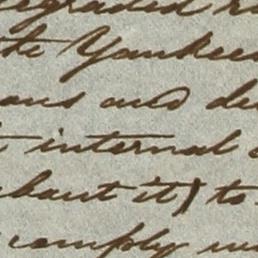 degraded
the Yankees
ons and de
internal
about it) to
comply